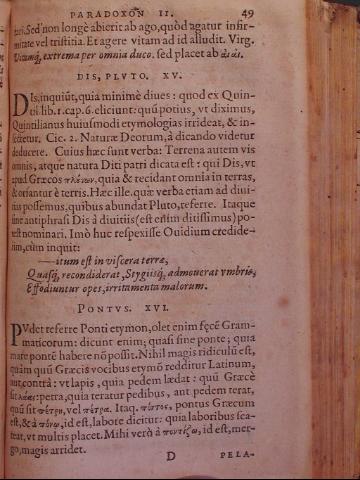 PARADOXON II. 49
tari. Sed non longè abierit ab ago, quòd agatur infir-
mitate vel tristitia. Et agere vitam ad id alludit. Virg.
Vtcumq́, extrema per omnia duco. sed placet ab
DIS, PLVTO. XV.
DIs, inquiũt, quia minimè diues: quod ex Quin-
til. lib. 1. cap. 6. eliciunt: quũ potius, vt diximus,
Quintilianus huiusmodi etymologias irrideat, & in-
sectetur. Cic. 2. Naturæ Deorum, à dicando videtur
deducere. Cuius hæc sunt verba: Terrena autem vis
omnis, atque natura Diti patri dicata est: qui Dis, vt
apud Græcos quia & recidant omnia in terras,
& oriantur è terris. Hæc ille. quæ verba etiam ad diui-
tias possemus, quibus abundat Pluto, referre. Itaque
sine antiphrasi Dis à diuitiis (est enim ditissimus) po-
test nominari. Imò huc respexisse Ouidium credide-
rim, cùm inquit:
—itum est in viscera terræ,
Quasq́, recondiderat, Stygiisq́, admouerat vmbris,
Effodiuntur opes, irritamenta malorum.
PONTVS. XVI.
PVdet referre Ponti etymon, olet enim fęcē Gram-
maticorum: dicunt enim; quasi sine ponte; quia
mare pontē habere nō possit. Nihil magis ridiculũ est,
quàm quũ Græcis vocibus etymon redditur Latinum,
aut contrà: vt lapis, quia pedem lædat: quũ Græcè
sit λᾶας: petra, quia teratur pedibus, aut pedem terat,
quũ sit πέτρη, vel πέτρα. Itaq. πόντος, pontus Græcum
est, & à πόνω, id est, labore dicitur: quia laboribus sca-
teat, vt multis placet. Mihi verò à ποντίζω, id est, mer-
go, magis arridet.
D PELA-